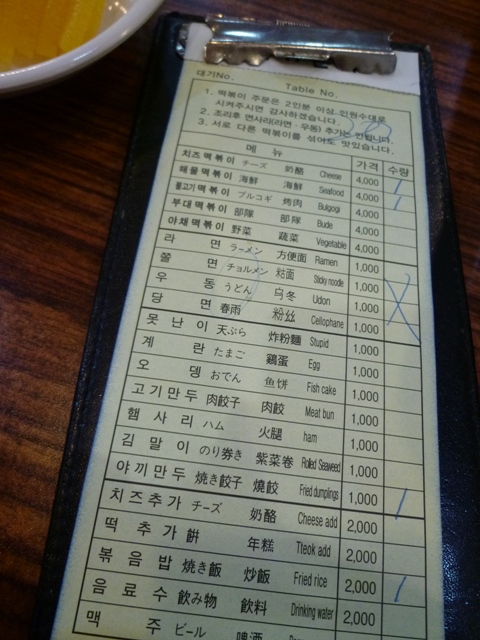 대기No. Table No.
1. 떡볶이 주문은 2인분 이상 인원수대로
시켜주시면 감사하겠습니다.
2. 조리후 면사리(라면·우동) 추가는 안됩니다.
3. 서로 다른 떡볶이를 섞어도 맛있습니다.
메 뉴 가격 수량
치즈떡볶이 チーズ 奶酪 Cheese 4,000
해물떡볶이 海鮮 海鮮 Seafood 4,000
불고기떡볶이 プルコギ 烤肉 Bulgogi 4,000
부대떡볶이 部隊 部隊 Bude 4,000
야채떡볶이 野菜 蔬菜 Vegetable 4,000
라 면 ラーメン 方便面 Ramen 1,000
쫄 면 チョルメン 粘面 Sticky noodle 1,000
우 동 うどん 乌冬 Udon 1,000
당 면 春雨 粉丝 Cellophane 1,000
못난이 天ぷら 炸粉麵 Stupid 1,000
계 란 たまご 鷄蛋 Egg 1,000
오 뎅 おでん 鱼饼 Fish cake 1,000
고기만두 肉餃子 肉餃 Meat bun 1,000
햄사리 ハム 火腿 ham 1,000
김말이 のり巻き 紫菜卷 Rolled Seaweed 1,000
야끼만두 焼き餃子 燒餃 Fried dumplings 1,000
치즈추가 チーズ 奶酪 Cheese add 2,000
떡 추가 餠 年糕 Tteok add 2,000
볶음밥 焼き飯 炒飯 Fried rice 2,000
음료수 飲み物 飲料 Drinking water 2,000
맥 주 ビール 啤酒